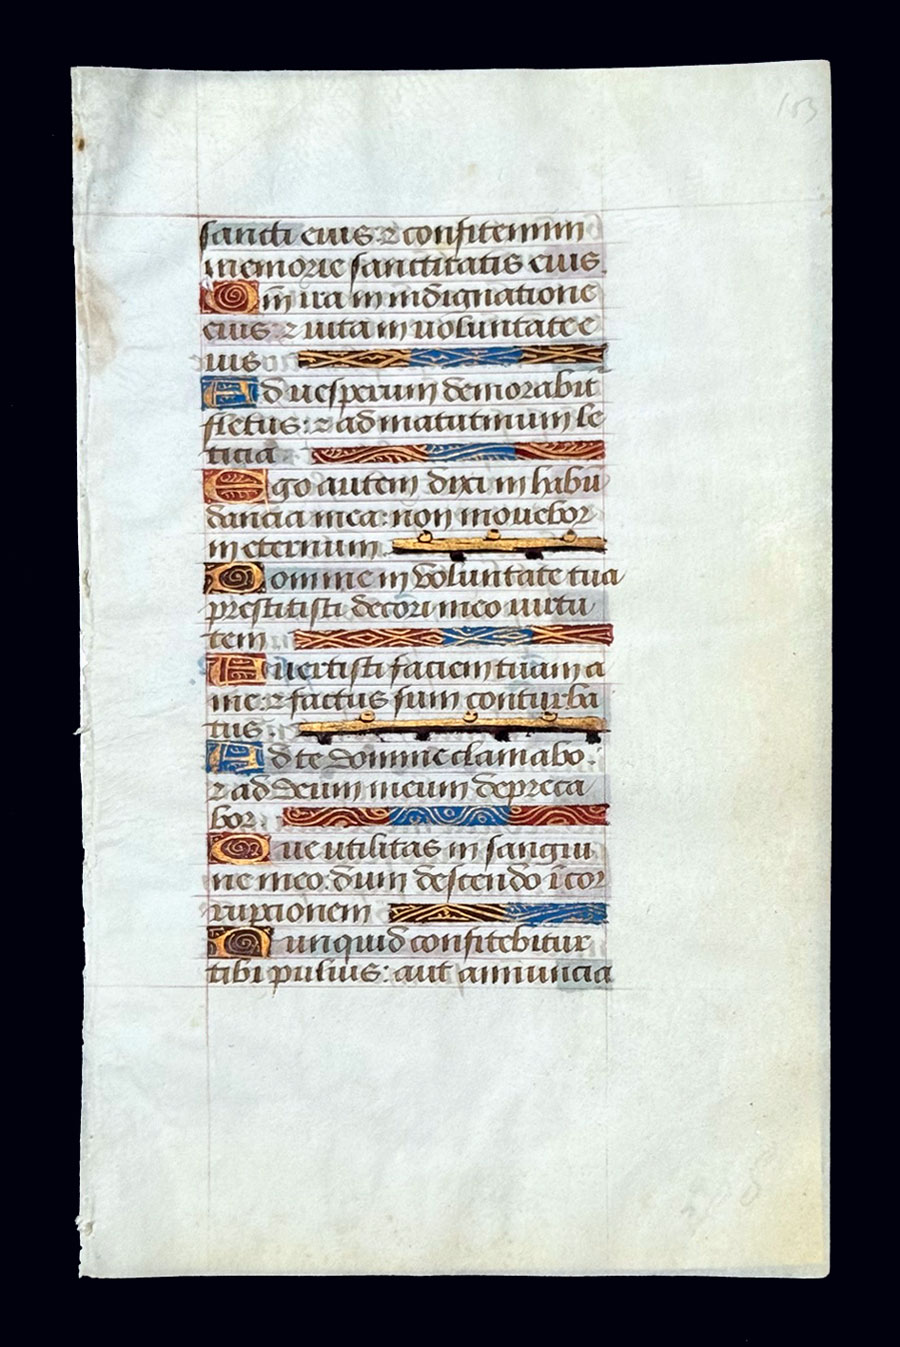 153
sancti eius: ⁊ confitemini
memorie sanctitatis eius.
Qm̄ ira in indignatione
eius: ⁊ vita in voluntate e
ius
Ad uesperum demorabit
fletus: ⁊ ad matutinum le
ticia
Ego autem dixi in habū
dancia mea: non movebor
in eternum.
Domine in voluntate tua
prestitisti decori meo uirtu
tem
Auertisti faciem tuam a
me: ⁊ factus sum conturba
tus.
Ad te domine clamabo:
⁊ ad deum meum depreca
bor
Que utilitas in sangui
ne meo: dum descendo ī cor
rupcionem
Nunquid confitebitur
tibi puluis: aut annuncia